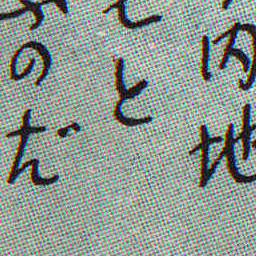 内地
と
のだ